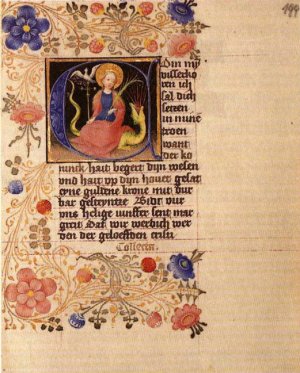 Com myn
uisserko
ren ich
sal dich
setzen
in mine
troen
want
der ko
nunck hait begert dijn wesen
vnd hait vp dijn hauet gesat
eyne guldene krone mit dur
bar gesteyntze Bidt vur
vns helige iunffer sent mar
greit Dat wir werdich wer
den der geloeffden cristi
Collecten